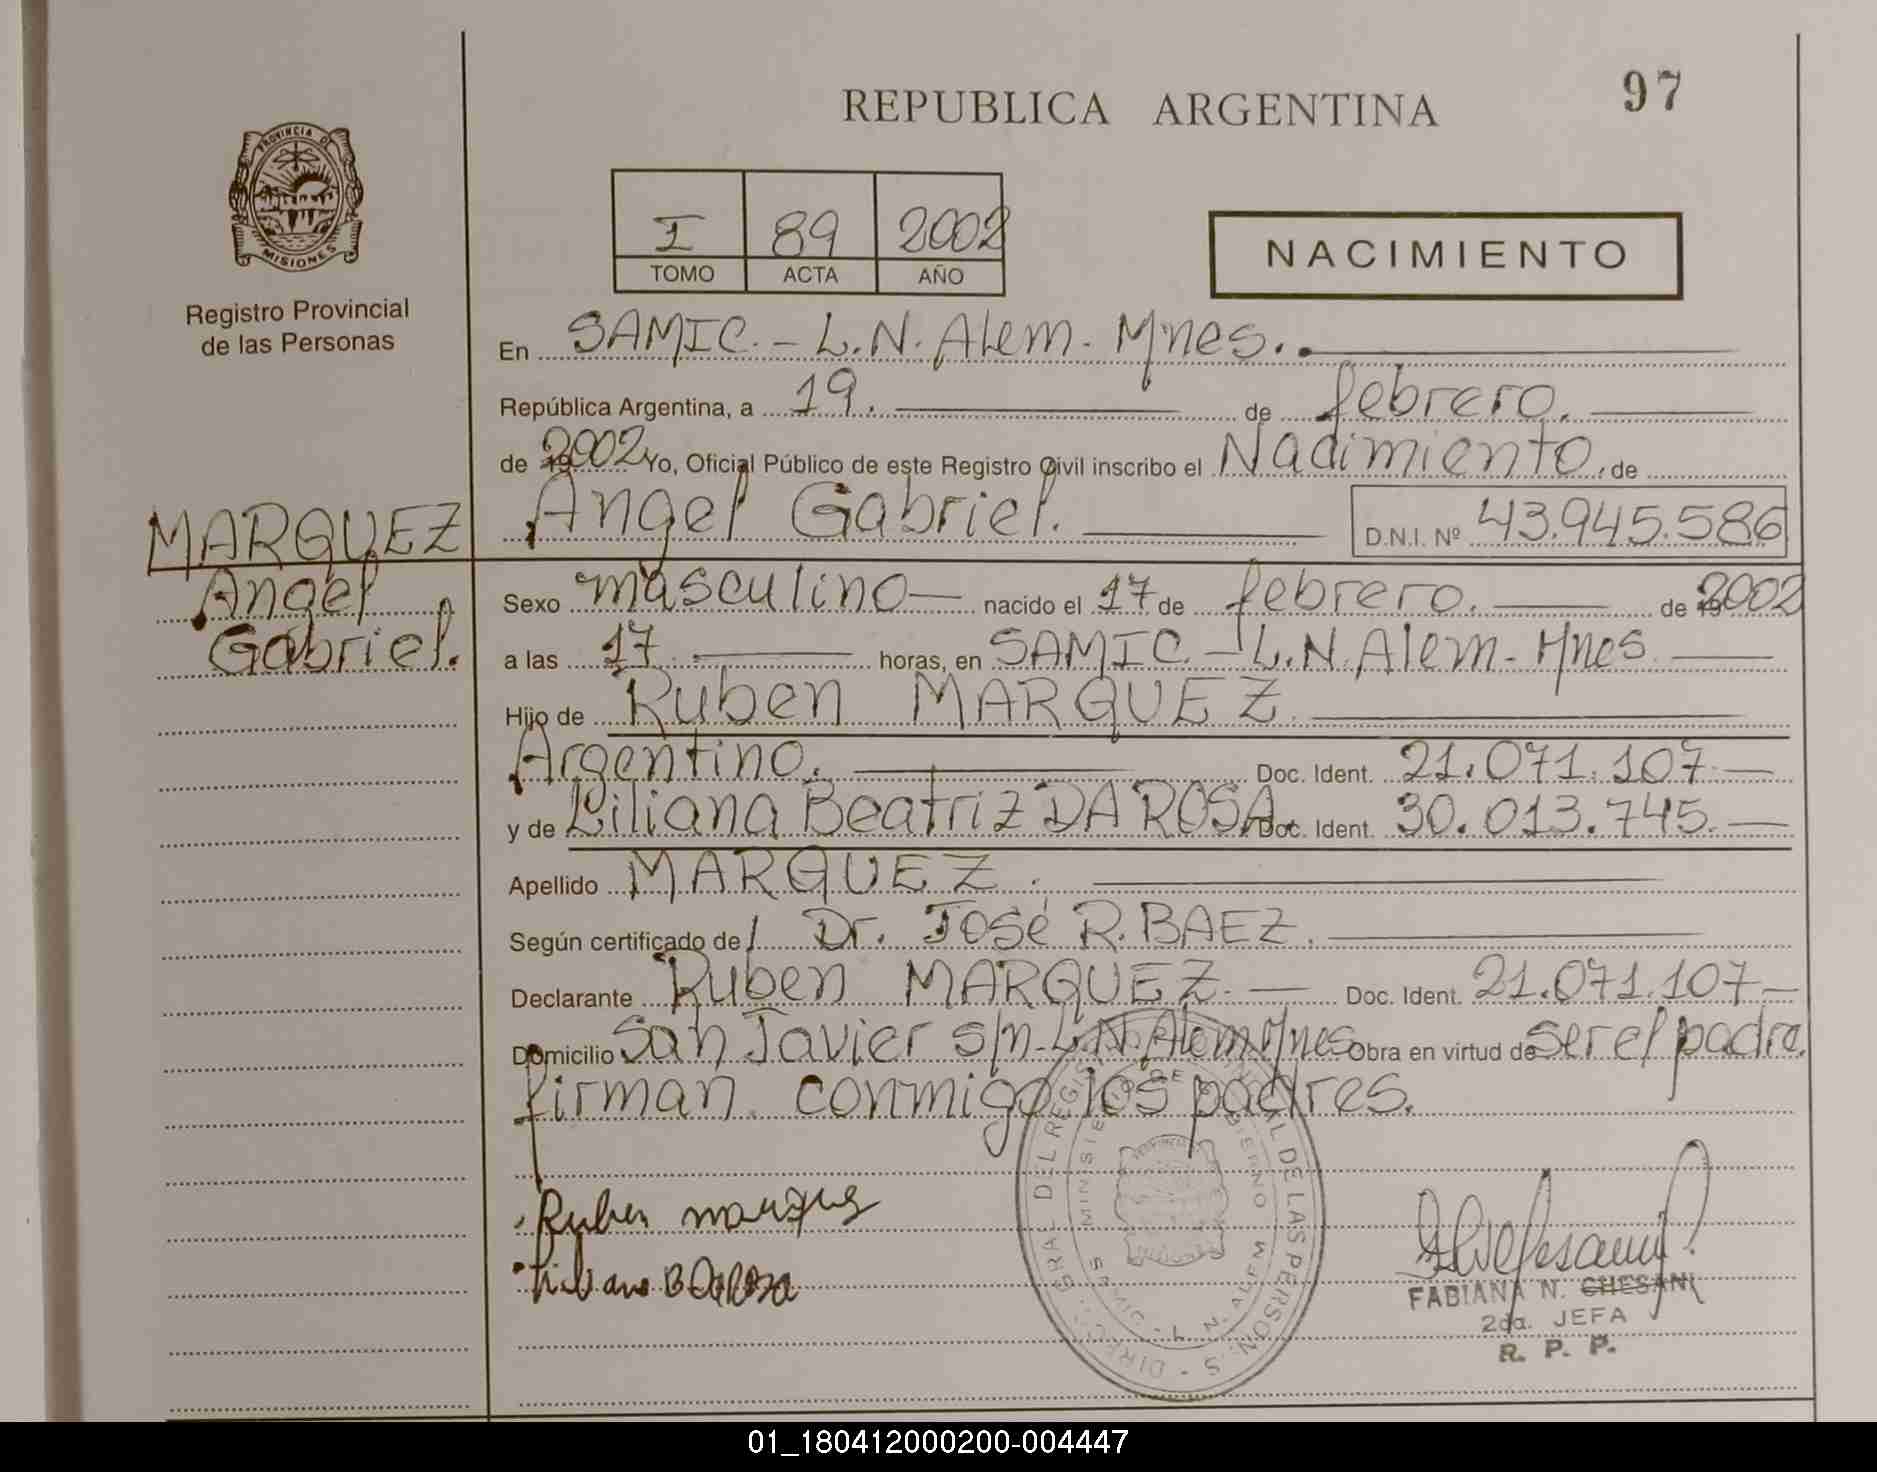 REPUBLICA ARGENTINA
97
PROVINCIA D
MISIONES
Registro Provincial
de las Personas
I 89 2002
TOMO ACTA AÑO
NACIMIENTO
En SAMIC. - L.N. Alem - Mnes.
República Argentina, a 19. de febrero.
de 2002 Yo, Oficial Público de este Registro Civil inscribo el Nacimiento, de
Angel Gabriel. D.N.I. Nº 43.945.586
MARQUEZ
Angel
Gabriel.
Sexo masculino nacido el 17 de febrero. de 2002
a las 17 horas, en SAMIC. - L.N. Alem - Mnes
Hijo de Ruben MARQUEZ
Argentino. Doc. Ident. 21.071.107
y de Liliana Beatriz DA ROSA. Doc. Ident. 30.013.745.
Apellido MARQUEZ.
Según certificado de Dr. José R. BAEZ.
Declarante Ruben MARQUEZ. Doc. Ident. 21.071.107
Domicilio San Javier s/n - L.N. Alem Mnes Obra en virtud de ser el padre.
firman conmigo los padres.
Ruben marques
FABIANA N. CHESANI
2da. JEFA
R. P. P.
01_180412000200-004447